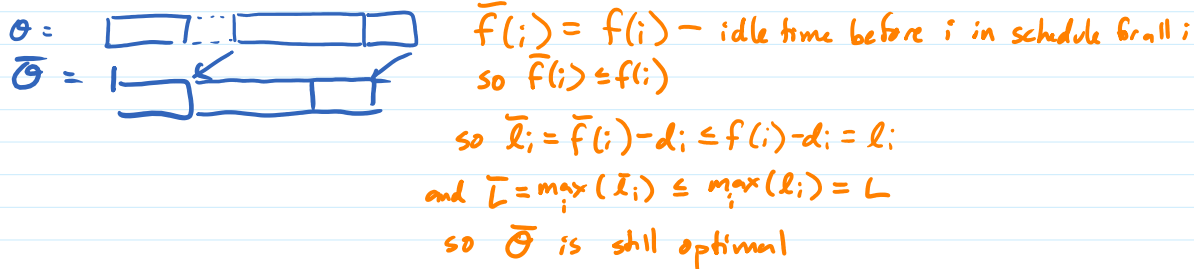 O = f̄(i) = f(i) - idle time before i in schedule for all i
Ō = so f̄(i) ≤ f(i)
so l̄ᵢ = f̄(i) - dᵢ ≤ f(i) - dᵢ = lᵢ
and L̄ = maxᵢ(l̄ᵢ) ≤ maxᵢ(lᵢ) = L
so Ō is still optimal